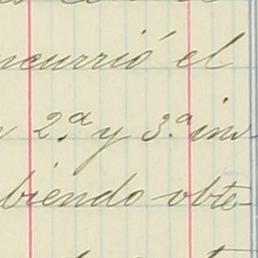 ncurrió el
2.ª y 3.ª in
biendo obte-